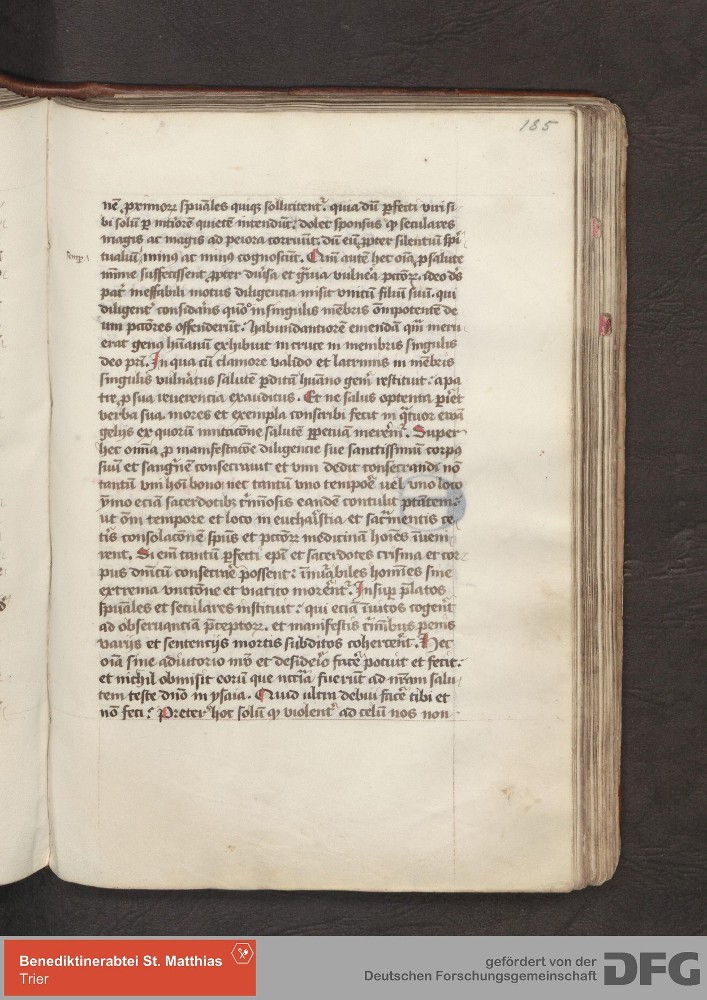 185
nē ꝓximoꝝ sp̄uales quiqꝫ sollicitent᷑. quia dū ꝑfecti viri si
bi solū ꝑ int̾iorē quietē intendūt: dolet sponsus ꝙ seculares
magis ac magis ad peiora corruūt. dū eū ꝓpter silentiū sp̄i
tualiū minus ac minus cognoscūt. Cum autē hec oīa ꝓ salute
mīme suffecissent ꝓpter diūsa et gͣuia vulnēa pctōꝝ. ideo ds̄
pat̾ ineffabili motus diligencia misit vnicū filiū suū. qui
diligent᷑ considāns quōº in singulis mēbris om̄ipotentē de
um pctōres offenderūt: habundantiorē emendā qm̄ meru
erat genus hūanū exhibuit in cruce in membris singulis
deo pri̅. In qua cū clamore valido et lacrimis in mēbris
singulis vulnātus salutē ꝑditū hūano gen̾i restituit: a pa
tre ꝓ sua reuerencia exauditus. Et ne salus optenta ꝑiret
verba sua. mores et exempla conscribi fecit in qͣtuor ewā
gelijs ex quorū imitacōne salutē ꝑpetuā merēm̄. Super
hec omīa ꝓ manifestacōe diligencie sue sanctissimū corpus
suū et sangᵒnē consecrauit et vim dedit consecrandi nō
tantū vni hōi bono nec tantū vno tempoͤ vel vno loco
ȳmo eciā sacerdotibꝫ c̾minosis eandē contulit ptātem:
ut om̄i tempore et loco in eucharistia et sacͣmentis ce
t̾is consolacōnē sp̄us et pctōꝝ medicinā hoīes inueni
rent. Si em̄ tantū ꝑfecti ep̄i et sacerdotes crisma et cor
pus dnīcū consecrāe possent: inūabiles homīes sine
extrema vnctōne et viatico morent᷑. Insuꝑ p̄latos
sp̄uales et seculares instituit: qui eciā īuitos cogent̾
ad obseruanciā p̄ceptoꝝ. et manifestis c̾minibꝰ penis
varijs et sentencijs mortis subditos cohercent̾. Hec
oīa sine adiutorio mͦ et desiderͦ facͤ potuit et fecit:
et nichil obmisit eorū que nccīa fuerūt ad nr̄am salu
tem teste dnō in ysaia. Quid ultra debui facͤ tibi et
nō feci? Preter hoc solū ꝙ violent᷑ ad celū nos non
Benediktinerabtei St. Matthias
Trier
gefördert von der
Deutschen Forschungsgemeinschaft
DFG